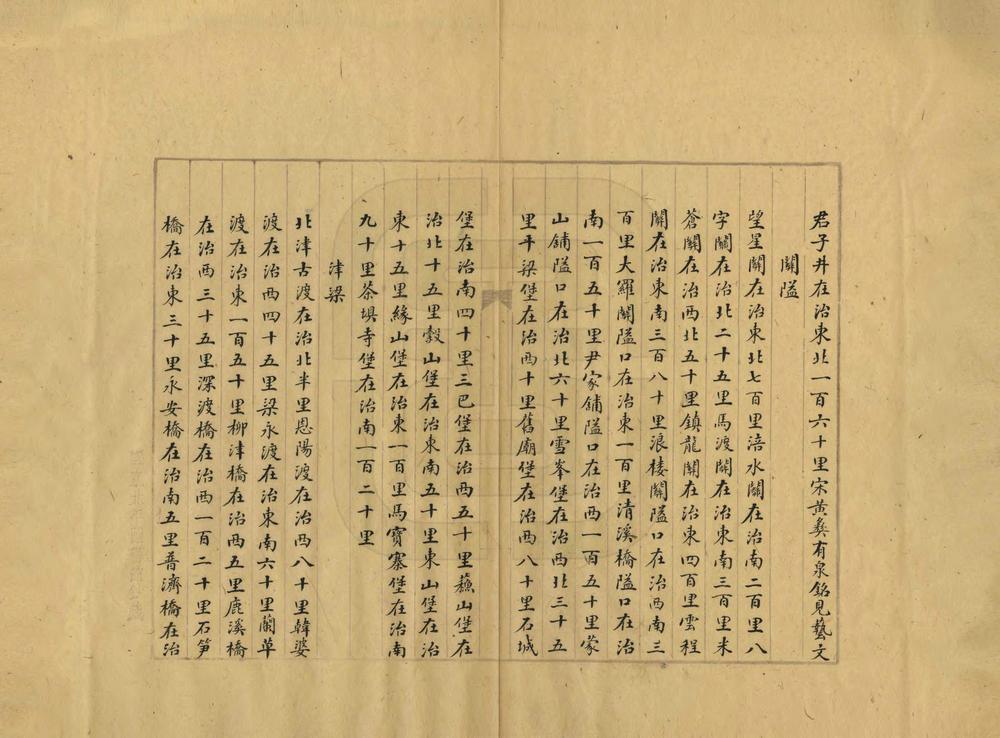 君子井在治東北一百六十里宋黃彝有泉銘見藝文
關隘
望星關在治東北七百里涪水關在治南二百里八
字關在治北二十五里馬渡關在治東南三百里米
蒼關在治西北五十里鎮龍關在治東四百里雲程
關在治東南三百八十里浪楼關隘口在治西南三
百里大羅關隘口在治東一百里清溪橋隘口在治
南一百五十里尹家鋪隘口在治西一百五十里蒙
山鋪隘口在治北六十里雪峯堡在治西北三十五
里平梁堡在治西十里舊廟堡在治西八十里石城
堡在治南四十里三巴堡在治西五十里蘓山堡在
治北十五里榖山堡在治東南五十里東山堡在治
東十五里緣山堡在治東一百里馬寶寨堡在治南
九十里茶垻寺堡在治南一百二十里
津梁
北津古渡在治北半里恩陽渡在治西八十里韓婆
渡在治西四十五里梁永渡在治東南六十里蘭草
渡在治東一百五十里柳津橋在治西五里鹿溪橋
在治西三十五里深渡橋在治西一百二十里石笋
橋在治東三十里永安橋在治南五里普濟橋在治